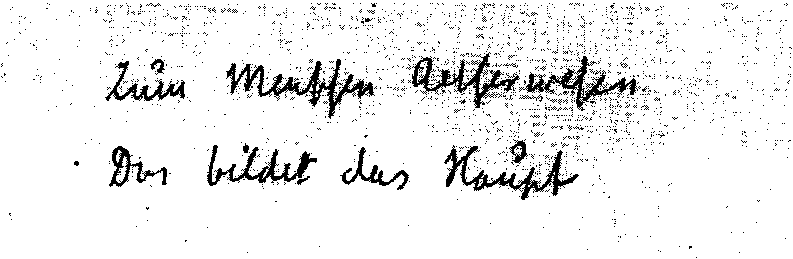 Zum Menschen Aetherwesen
Das bildet das Haupt